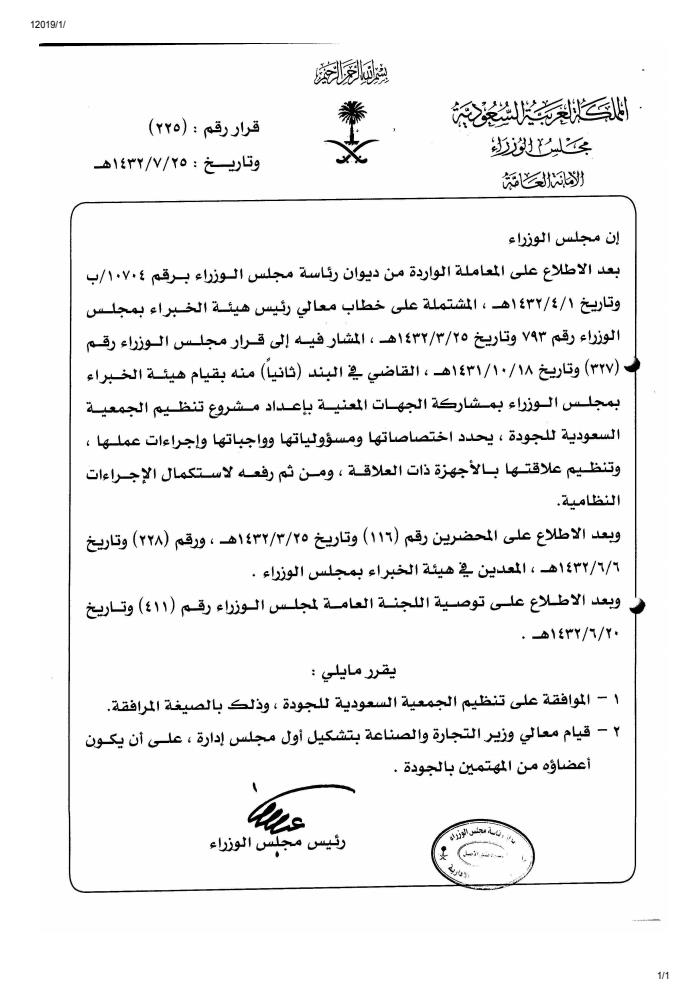 12019/1/
بسم الله الرحمن الرحيم
المملكة العربية السعودية
مجلس الوزراء
الأمانة العامة
قرار رقم : (٢٢٥)
وتاريخ : ١٤٣٢/٧/٢٥هـ
إن مجلس الوزراء
بعد الاطلاع على المعاملة الواردة من ديوان رئاسة مجلس الوزراء برقم ١٠٧٠٤/ب
وتاريخ ١٤٣٢/٤/١هـ ، المشتملة على خطاب معالي رئيس هيئة الخبراء بمجلس
الوزراء رقم ٧٩٣ وتاريخ ١٤٣٢/٣/٢٥هـ ، المشار فيه إلى قرار مجلس الوزراء رقم
(٣٢٧) وتاريخ ١٤٣١/١٠/١٨هـ ، القاضي في البند (ثانياً) منه بقيام هيئة الخبراء
بمجلس الوزراء بمشاركة الجهات المعنية بإعداد مشروع تنظيم الجمعية
السعودية للجودة ، يحدد اختصاصاتها ومسؤولياتها وواجباتها وإجراءات عملها ،
وتنظيم علاقتها بالأجهزة ذات العلاقة ، ومن ثم رفعه لاستكمال الإجراءات
النظامية.
وبعد الاطلاع على المحضرين رقم (١١٦) وتاريخ ١٤٣٢/٣/٢٥هـ ، ورقم (٢٢٨) وتاريخ
١٤٣٢/٦/٦هـ ، المعدين في هيئة الخبراء بمجلس الوزراء .
وبعد الاطلاع على توصية اللجنة العامة لمجلس الوزراء رقم (٤١١) وتاريخ
١٤٣٢/٦/٢٠هـ .
يقرر مايلي :
١ – الموافقة على تنظيم الجمعية السعودية للجودة ، وذلك بالصيغة المرافقة.
٢ – قيام معالي وزير التجارة والصناعة بتشكيل أول مجلس إدارة ، على أن يكون
أعضاؤه من المهتمين بالجودة .
رئيس مجلس الوزراء
رئاسة مجلس الوزراء
1/1